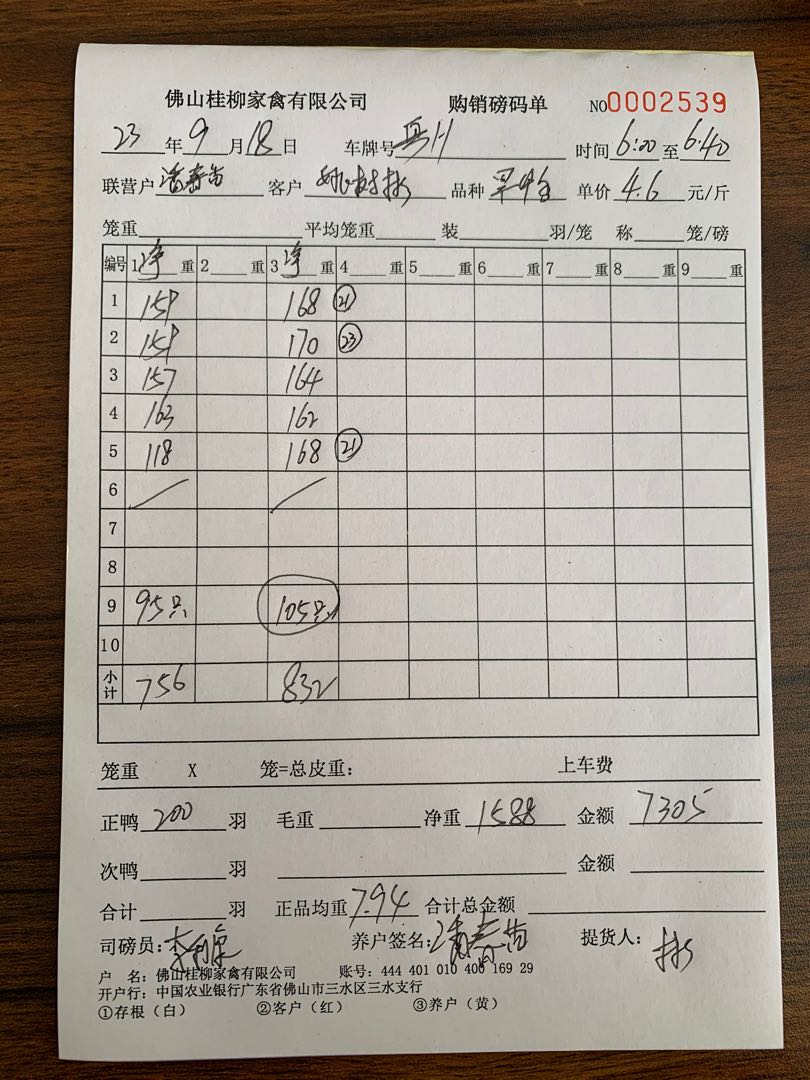 佛山桂柳家禽有限公司 购销磅码单 NO0002539
23年9月18日 车牌号 时间6:00至6:40
联营户 客户 品种 单价4.6元/斤
笼重 平均笼重 装 羽/笼 称 笼/磅
编号 1净重 2 重 3净重 4 重 5 重 6 重 7 重 8 重 9 重
1 159 168 ㉑
2 159 170 ㉓
3 157 164
4 163 162
5 118 168 ㉑
6
7
8
9 95只 105只
10
小计 756 832
笼重 X 笼=总皮重: 上车费
正鸭200羽 毛重 净重1588 金额7305
次鸭 羽 金额
合计 羽 正品均重7.94 合计总金额
司磅员: 养户签名: 提货人:
户 名: 佛山桂柳家禽有限公司 账号: 444 401 010 400 169 29
开户行: 中国农业银行广东省佛山市三水区三水支行
①存根(白) ②客户(红) ③养户(黄)